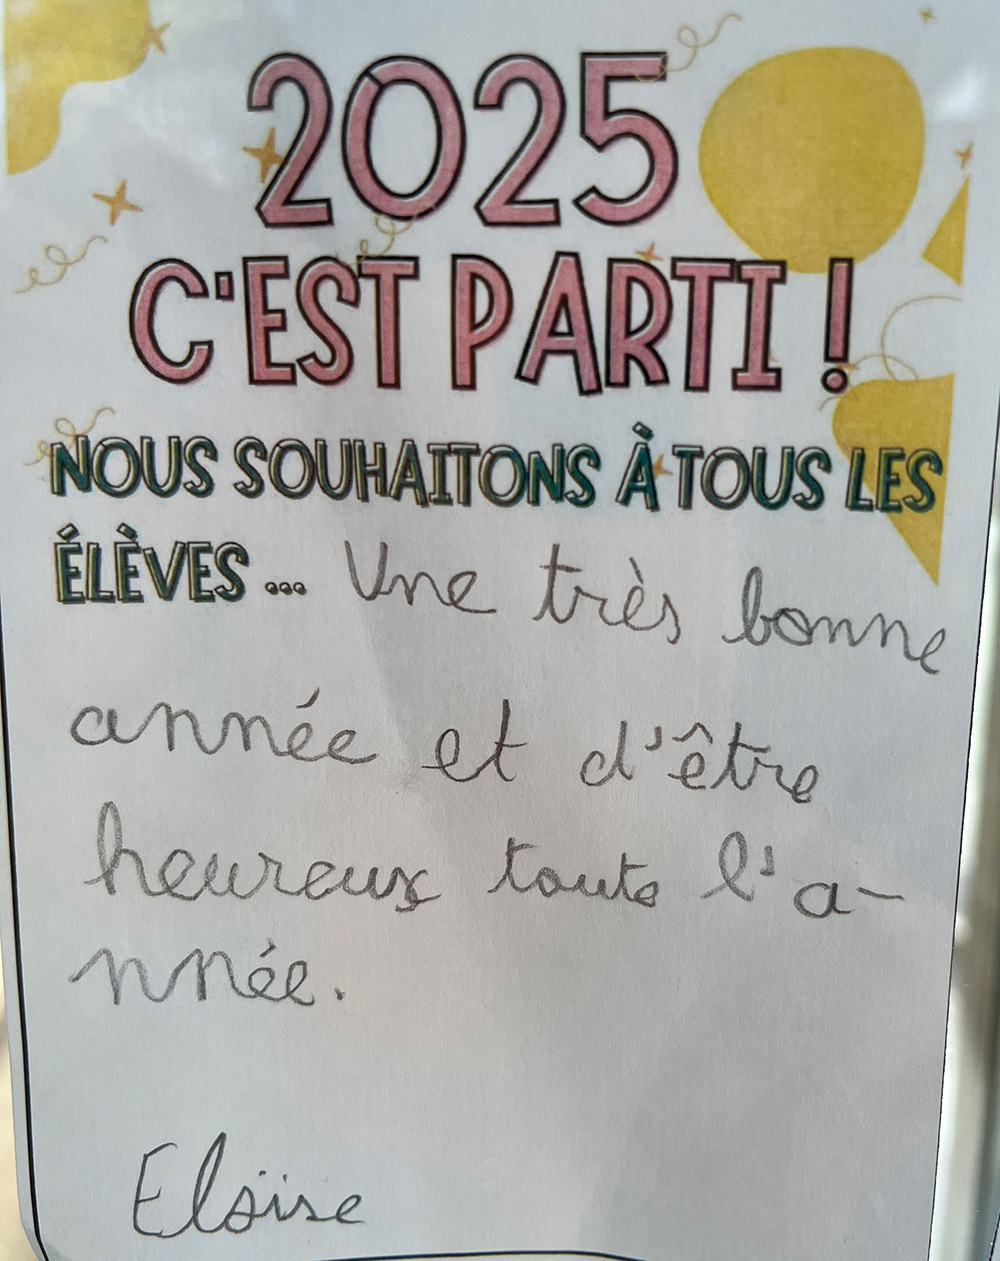 2025
C'EST PARTI !
NOUS SOUHAITONS À TOUS LES
ÉLÈVES ... Une très bonne
année et d'être
heureux toute l'a-
nnée.
Eloïse